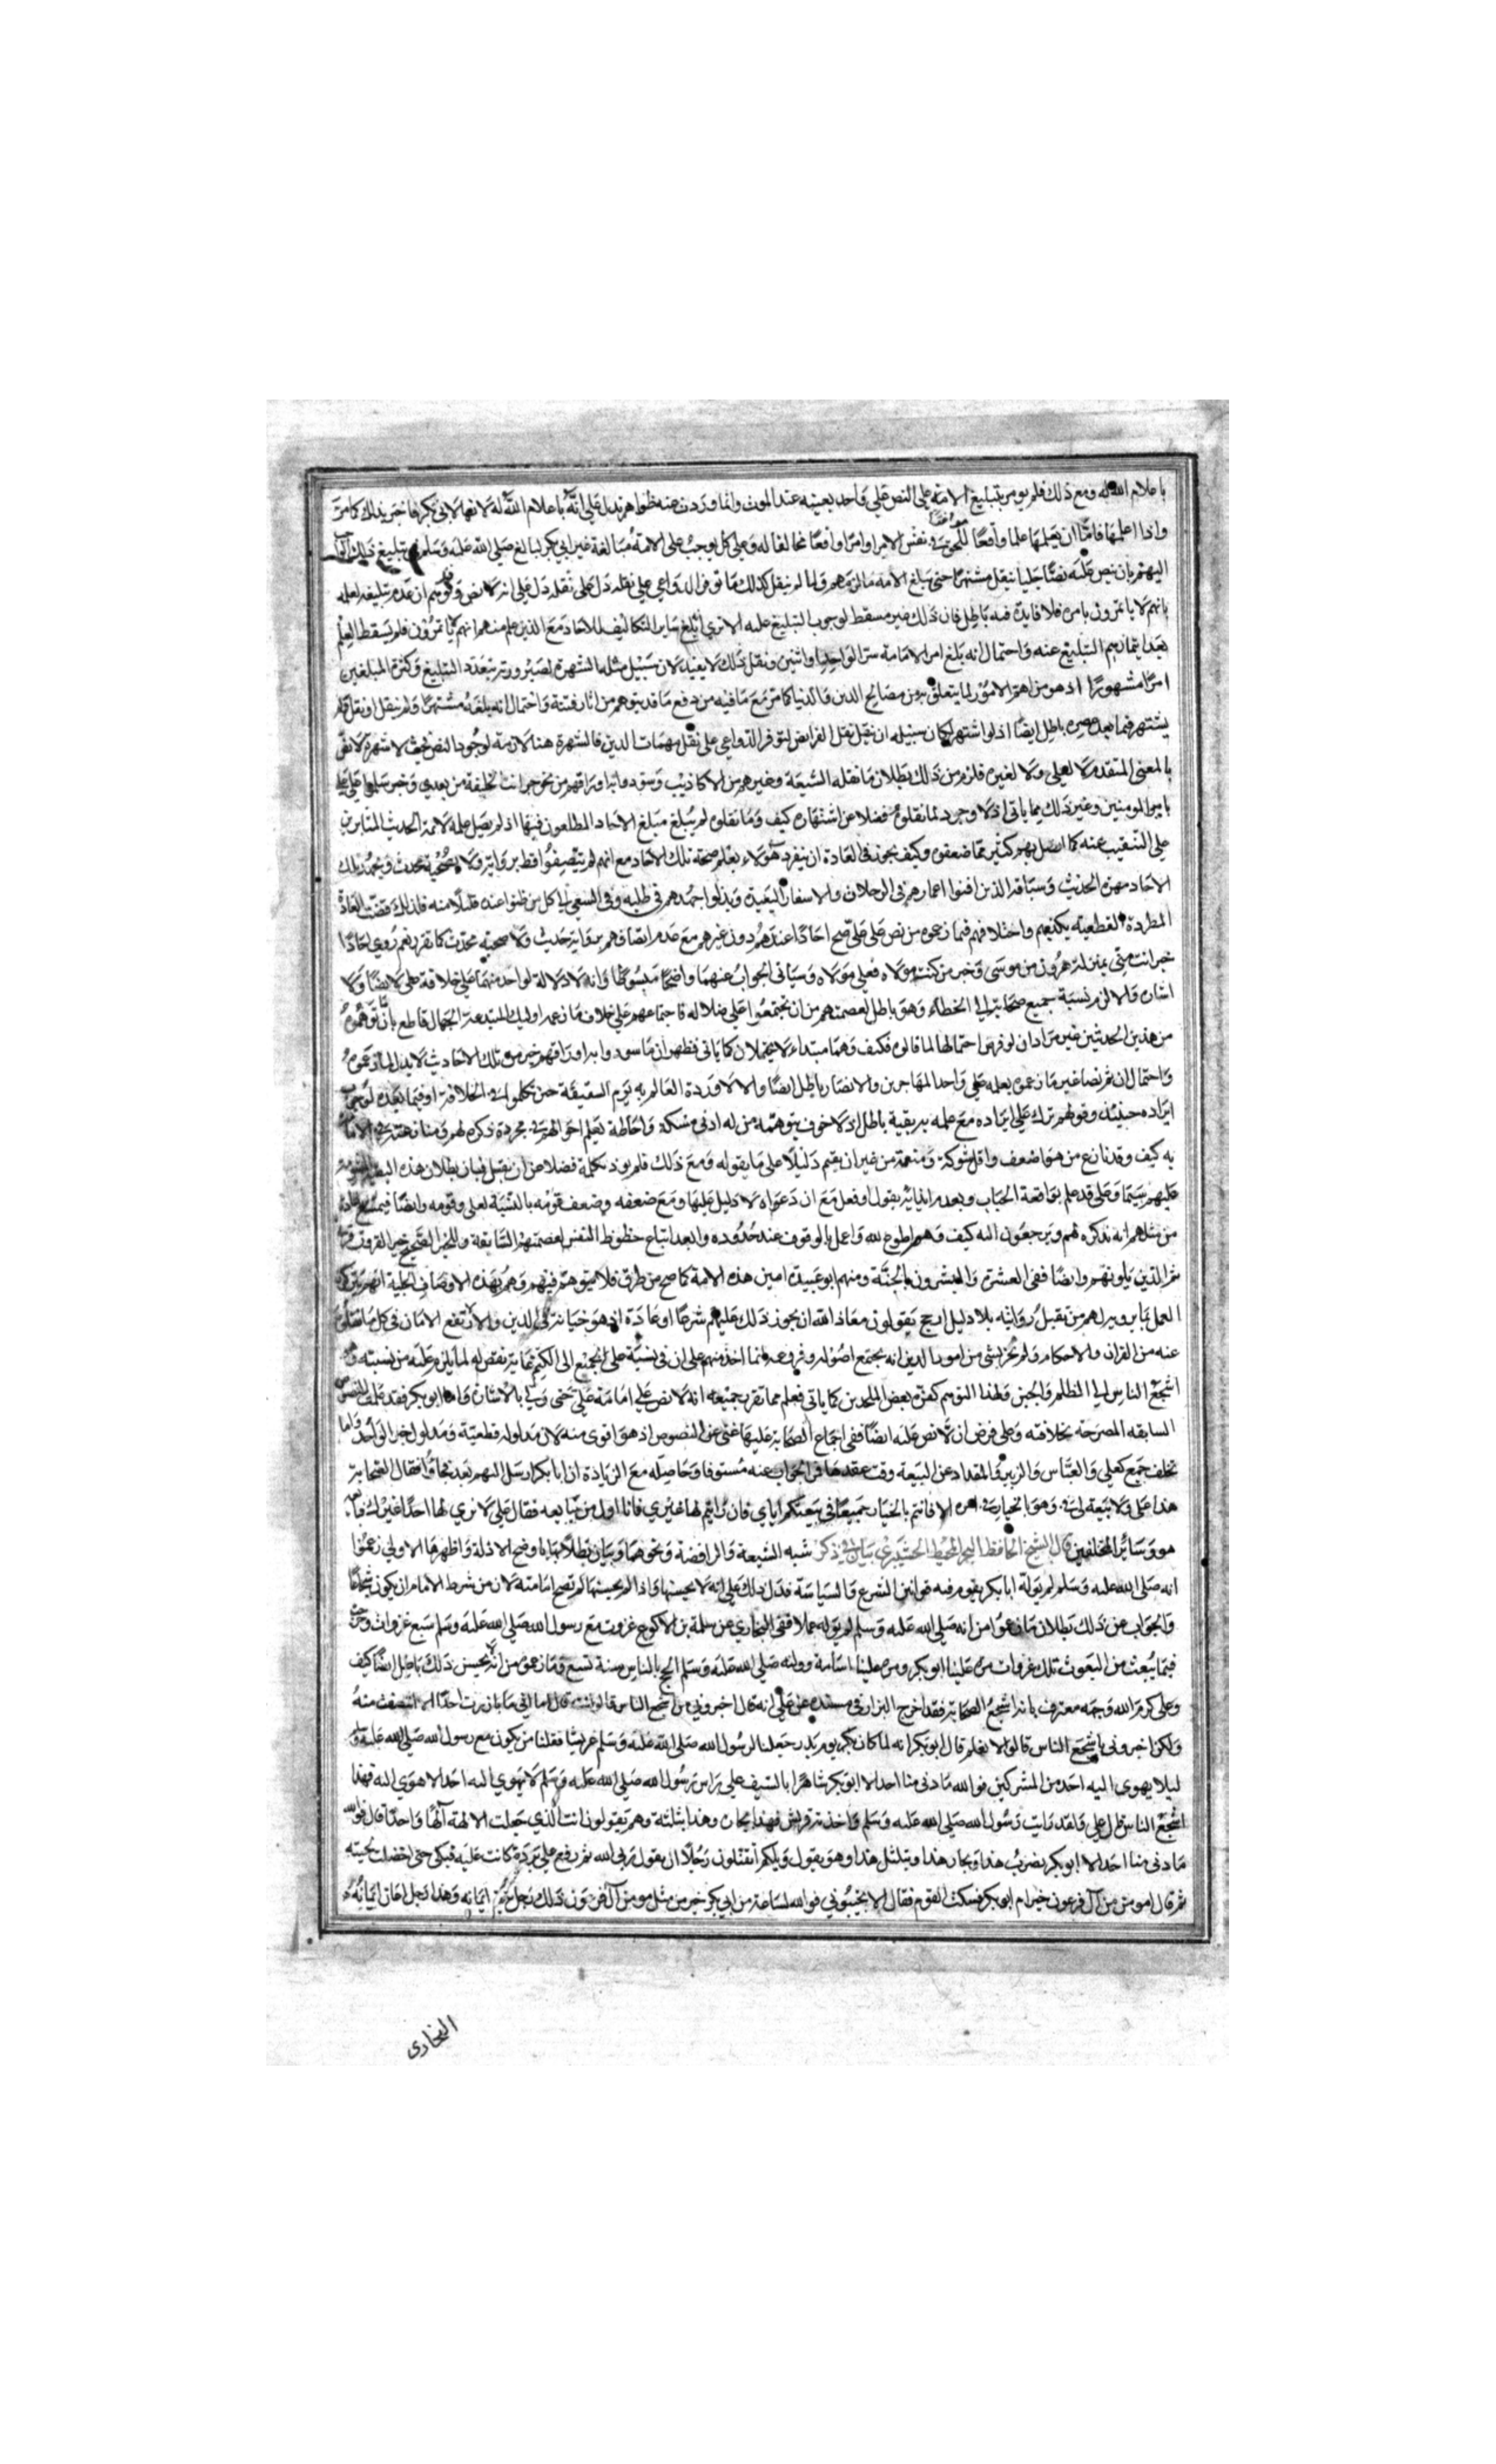 باعلام الله له ومع ذلك فلم يومر بتبليغ الامة على النص على واحد بعينه عند الموت وانما وردت عنه ظواهر تدل على انه باعلام الله له لانها لابى بكر فاخبر بذلك كما مر
واذا اعلمها فاما ان يعلمها علما واقعا للحق فى نفس الامر او امرا واقعا مخالفا له وعلى كل يوجب على الامة مبالغة غير ابى بكر لبالغ صلى الله عليه وسلم فى تبليغ ذلك
اليهم بان ينص عليه نصا جليا ينقل مشتهرا حتى يبلغ الامة ما لزمهم ولما لم ينقل كذلك مع توفر الدواعى على نقله دل على انه لا نص وتوهم ان عدم تبليغه لعلمه
بانهم لا ياتمرون بامره فلا فايدة فيه باطل فان ذلك غير مسقط لوجوب التبليغ عليه الا ترى انه بلغ ساير التكاليف للاحاد مع الذين علم منهم انهم لا ياتمرون فلم يسقط العلم
بعدم ايتمارهم التبليغ عنه واحتمال انه بلغ امر الامامة سرا لواحد او اثنين ونقل كذلك لا يفيد لان سبيل مثله الشهرة لصيرورته بتعدد التبليغ وكثرة المبلغين
امرا مشهورا اذ هو من اهم الامور لما يتعلق به من مصالح الدين والدنيا كما مر مع ما فيه من دفع ما قد يتوهم من اثارة فتنة واحتمال انه بلغه مشتهرا ولم ينقل او نقل ولم
يشتهر فيما بعد عصره باطل ايضا اذ لو اشتهر لكان سبيله ان ينقل نقل الفرايض لتوفر الدواعى على نقل مهمات الدين فالشهرة هنا لازمة لوجود النص فحيث لا شهرة لا نص
بالمعنى المتقدم لا لعلى ولا لغيره فلزم من ذلك بطلان ما نقله الشيعة وغيرهم من الاكاذيب وسودوا به اوراقهم من نحو خبر انت الخليفة من بعدى وخبر سلموا على على
بامير المومنين وغير ذلك مما ياتى اذ لا وجود لما نقلوه فضلا عن اشتهاره كيف وما نقلوه لم يبلغ مبلغ الاحاد المطعون فيها اذ لم يصل علمه لائمة الحديث المثابرين
على التنقيب عنه كما اتصل بهم كثير مما ضعفوه وكيف يجوز فى العادة ان ينفرد هولاء بعلم صحة تلك الاحاد مع انهم لم يتصفوا قط برواية ولا بصحبة محدث ويجهل تلك
الاحاد مهرة الحديث وسباقه الذين افنوا اعمارهم فى الرحلات والاسفار البعيدة وبذلوا جهدهم فى طلبه وفى السعى الى كل من ظنوا عنده قليلا منه فلذلك قضت العادة
المطردة القطعية بكذبهم واختلاقهم فيما زعموه من نص على على صح احادا عندهم دون غيرهم مع عدم اتصافهم برواية حديث ولا صحبة محدث كما تقرر نعم روى احادا
خبر انت منى بمنزلة هرون من موسى وخبر من كنت مولاه فعلى مولاه وسياتى الجواب عنهما واضحا مبسوطا وانه لا دلالة لواحد منهما على خلافة على لا نصا ولا
اشارة والا لزم نسبة جميع صحابته الى الخطاء وهو باطل لعصمتهم من ان تجتمعوا على ضلالة فاجماعهم على خلاف ما زعمه اوليك المبتدعة الجهال قاطع بان ما توهموه
من هذين الحديثين غير مراد ان لو فرض احتمالها لما قالوه فكيف وهما مبتداء لا يحتملان كما ياتى فظهر ان ما سودوا به اوراقهم من تلك الاحاديث لا يدل لما زعموه
واحتمال ان ثم نصا غير ما زعموه يعلمه على واحد المهاجرين والانصار باطل ايضا والا لاورده العالم به يوم السقيفة حين تكلموا فى الخلافة او فيما بعده لوجوب
ايراده حينئذ وقولهم ترك على ايراده مع علمه به تقية باطل اذ لا خوف يتوهمه من له ادنى مسكة واحاطة بعلم احوالهم فى مجرد ذكره لهم ومنازعتهم فى الامامة
به كيف وقد نازع من هو اضعف واقل شوكة ومنعة من غير ان يقيم دليلا على ما يقوله ومع ذلك فلم يوذ بكلمة فضلا عن ان يقتل فبان بطلان هذه التقية المشومة
عليهم سيما وعلى قد علم بواقعة الحباب وبعدم ايذائه بقول او فعل مع ان دعواه لا دليل عليها ومع ضعفه وضعف قومه بالنسبة لعلى وقومه وايضا فيمتنع عادة
من مثلهم انه يذكره لهم ويرجعون اليه كيف وهم اطوع لله واعمل بالوقوف عند حدوده وابعد اتباع حظوظ النفس لعصمتهم السابقة وللخبر الصحيح خير القرون قرنى
ثم الذين يلونهم وايضا ففى العشرة والمبشرون بالجنة ومنهم ابو عبيدة امين هذه الامة كما صح من طرق فلا يتوهم فيهم وهم بهذه الاوصاف الجلية انهم يتركون
العمل بما يرويه لهم من تقبل روايته بلا دليل ارجح يقولون معاذ الله ان يجوز ذلك عليهم شرعا او عادة اذ هو خيانة فى الدين والا لارتفع الامان فى كل ما نقلوه
عنه من القران والاحكام ولم نجزم بشى من امور الدين انه بجميع اصوله وفروعه انما اخذ منهم على ان فى نسبة على الجميع الى الكتم نقص له لما يلزم عليه من نسبته وهو
اشجع الناس الى الظلم والجبن ولهذا التوهم كفره بعض الملحدين كما ياتى فعلم مما تقرر جميعه انه لا نص على امامة على حتى ولا بالاشارة واما ابو بكر فقد علمت النصوص
السابقه المصرحة بخلافته وعلى فرض ان لا نص عليه ايضا ففى اجماع الصحابة عليها غنى عن النصوص اذ هو اقوى منه لان مدلوله قطعية ومدلول خبر الواحد واما
تخلف جمع كعلى والعباس والزبير والمقداد عن البيعة وقت عقدها فمر الجواب عنه مستوفا وحاصله مع الزيادة ان ابا بكر ارسل اليهم بعد فجاؤا فقال للصحابة
هذا على ولا بيعة لى فى وهو بالخيار فى امره الا فانتم بالخيار جميعا فى بيعتكم اياى فان رايتم لها غيرى فانا اول من يبايعه فقال على لا نرى لها احدا غيرك فبايعه
هو وسائر المتخلفين قال الشيخ الحافظ البحر المحيط فى ذكر شبه الشيعة والرافضة ونحوهما وبيان بطلانها باوضح الادلة واظهرها الاولى زعموا
انه صلى الله عليه وسلم لم يولّ ابا بكر يقوم فيه قوانين الشرع والسياسة فدل ذلك على انه لا يحسنها واذا لم يحسنها لم تصح امامته لان من شرط الامام ان يكون شجاعا
والجواب عن ذلك بطلان ما زعموا من انه صلى الله عليه وسلم لم يوله عملا ففى البخارى عن سلمة بن الاكوع غزوت مع رسول الله صلى الله عليه وسلم سبع غزوات وخرجت
فيما يبعث من البعوث تلك غزوات مرة علينا ابو بكر ومرة علينا اسامة وولته صلى الله عليه وسلم الحج بالناس سنة تسع وما زعموه من انه لا يحسن ذلك باطل ايضا كيف
وعلى كرم الله وجهه معترف بانه اشجع الصحابة فقد اخرج البزار فى مسنده عن على انه قال اخبرونى من اشجع الناس قالوا انت قال اما انى ما بارزت احدا الا انتصفت منه
ولكن اخبرونى باشجع الناس قالوا لا نعلم قال ابو بكر انه لما كان يوم بدر جعلنا لرسول الله صلى الله عليه وسلم عريشا فقلنا من يكون مع رسول الله صلى الله عليه وسلم
ليلا يهوى اليه احد من المشركين فوالله ما دنى منا احد الا ابو بكر شاهرا بالسيف على راس رسول الله صلى الله عليه وسلم لا يهوى اليه احد الا هوى اليه فهذا
اشجع الناس قال على ولقد رايت رسول الله صلى الله عليه وسلم واخذته قريش فهذا يجاه وهذا يتلتله وهم يقولون انت الذى جعلت الالهة آلها واحدا قال فوالله
ما دنى منا احد الا ابو بكر يضرب هذا ويجاء هذا ويتلتل هذا وهو يقول ويلكم أتقتلون رجلا ان يقول ربى الله ثم رفع على بردة كانت عليه فبكى حتى اخضلت لحيته
ثم قال امومن من آل فرعون خير ام ابو بكر فسكت القوم فقال الا تجيبونى فوالله لساعة من ابى بكر خير من مثل مومن آل فرعون ذلك رجل يكتم ايمانه وهذا رجل اعلن ايمانه
البخارى